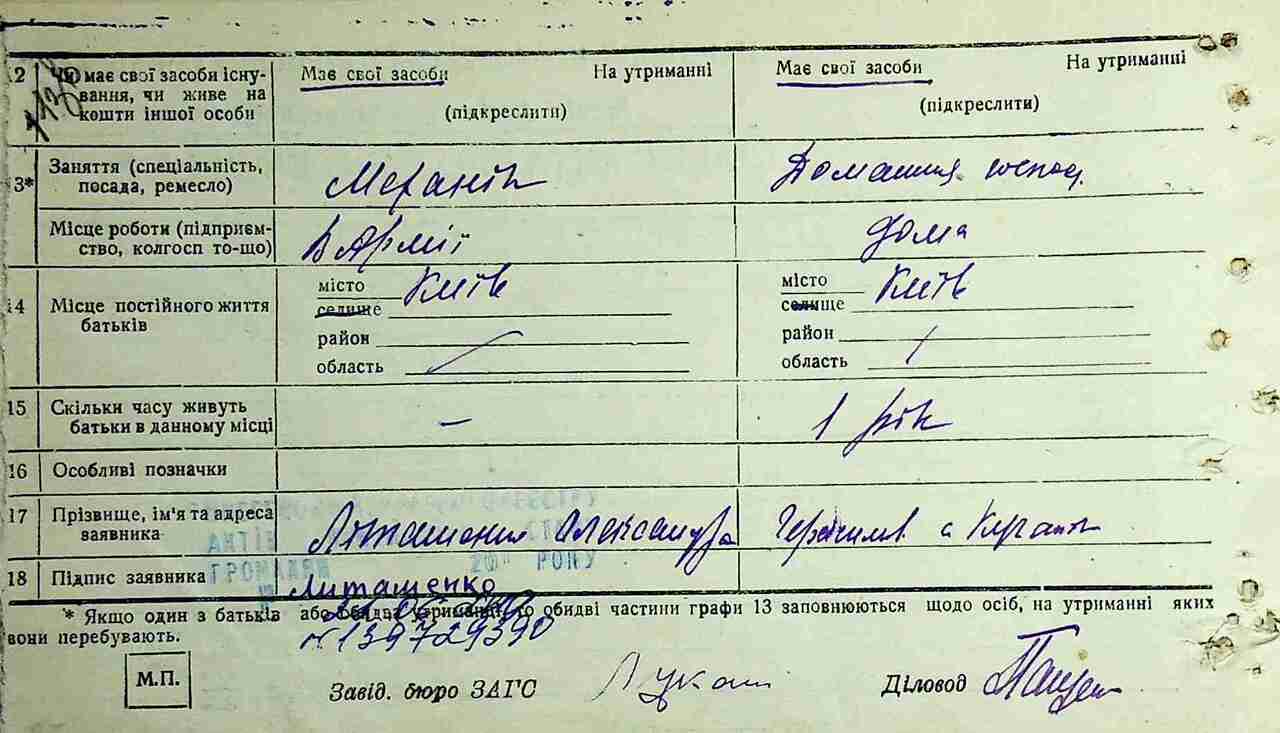 12 Чи має свої засоби існу- Має свої засоби На утриманні Має свої засоби На утриманні
вання, чи живе на
кошти іншої особи (підкреслити) (підкреслити)
13* Заняття (спеціальність, Механік Домашня господ.
посада, ремесло)
Місце роботи (підприєм- В Армії дома
ство, колгосп то-що)
14 Місце постійного життя місто Київ місто Київ
батьків селище селище
район район
область область
15 Скільки часу живуть – 1 рік
батьки в данному місці
16 Особливі позначки
17 Прізвище, ім'я та адреса Александра
заявника
ВІТНА
ГРОМАДЯН 20 РОКУ
18 Підпис заявника Литашенко
* Якщо один з батьків або обидва утриманні, то обидві частини графи 13 заповнюються щодо осіб, на утриманні яких
вони перебувають.
№139729390
М.П. Завід. бюро ЗАГС Діловод